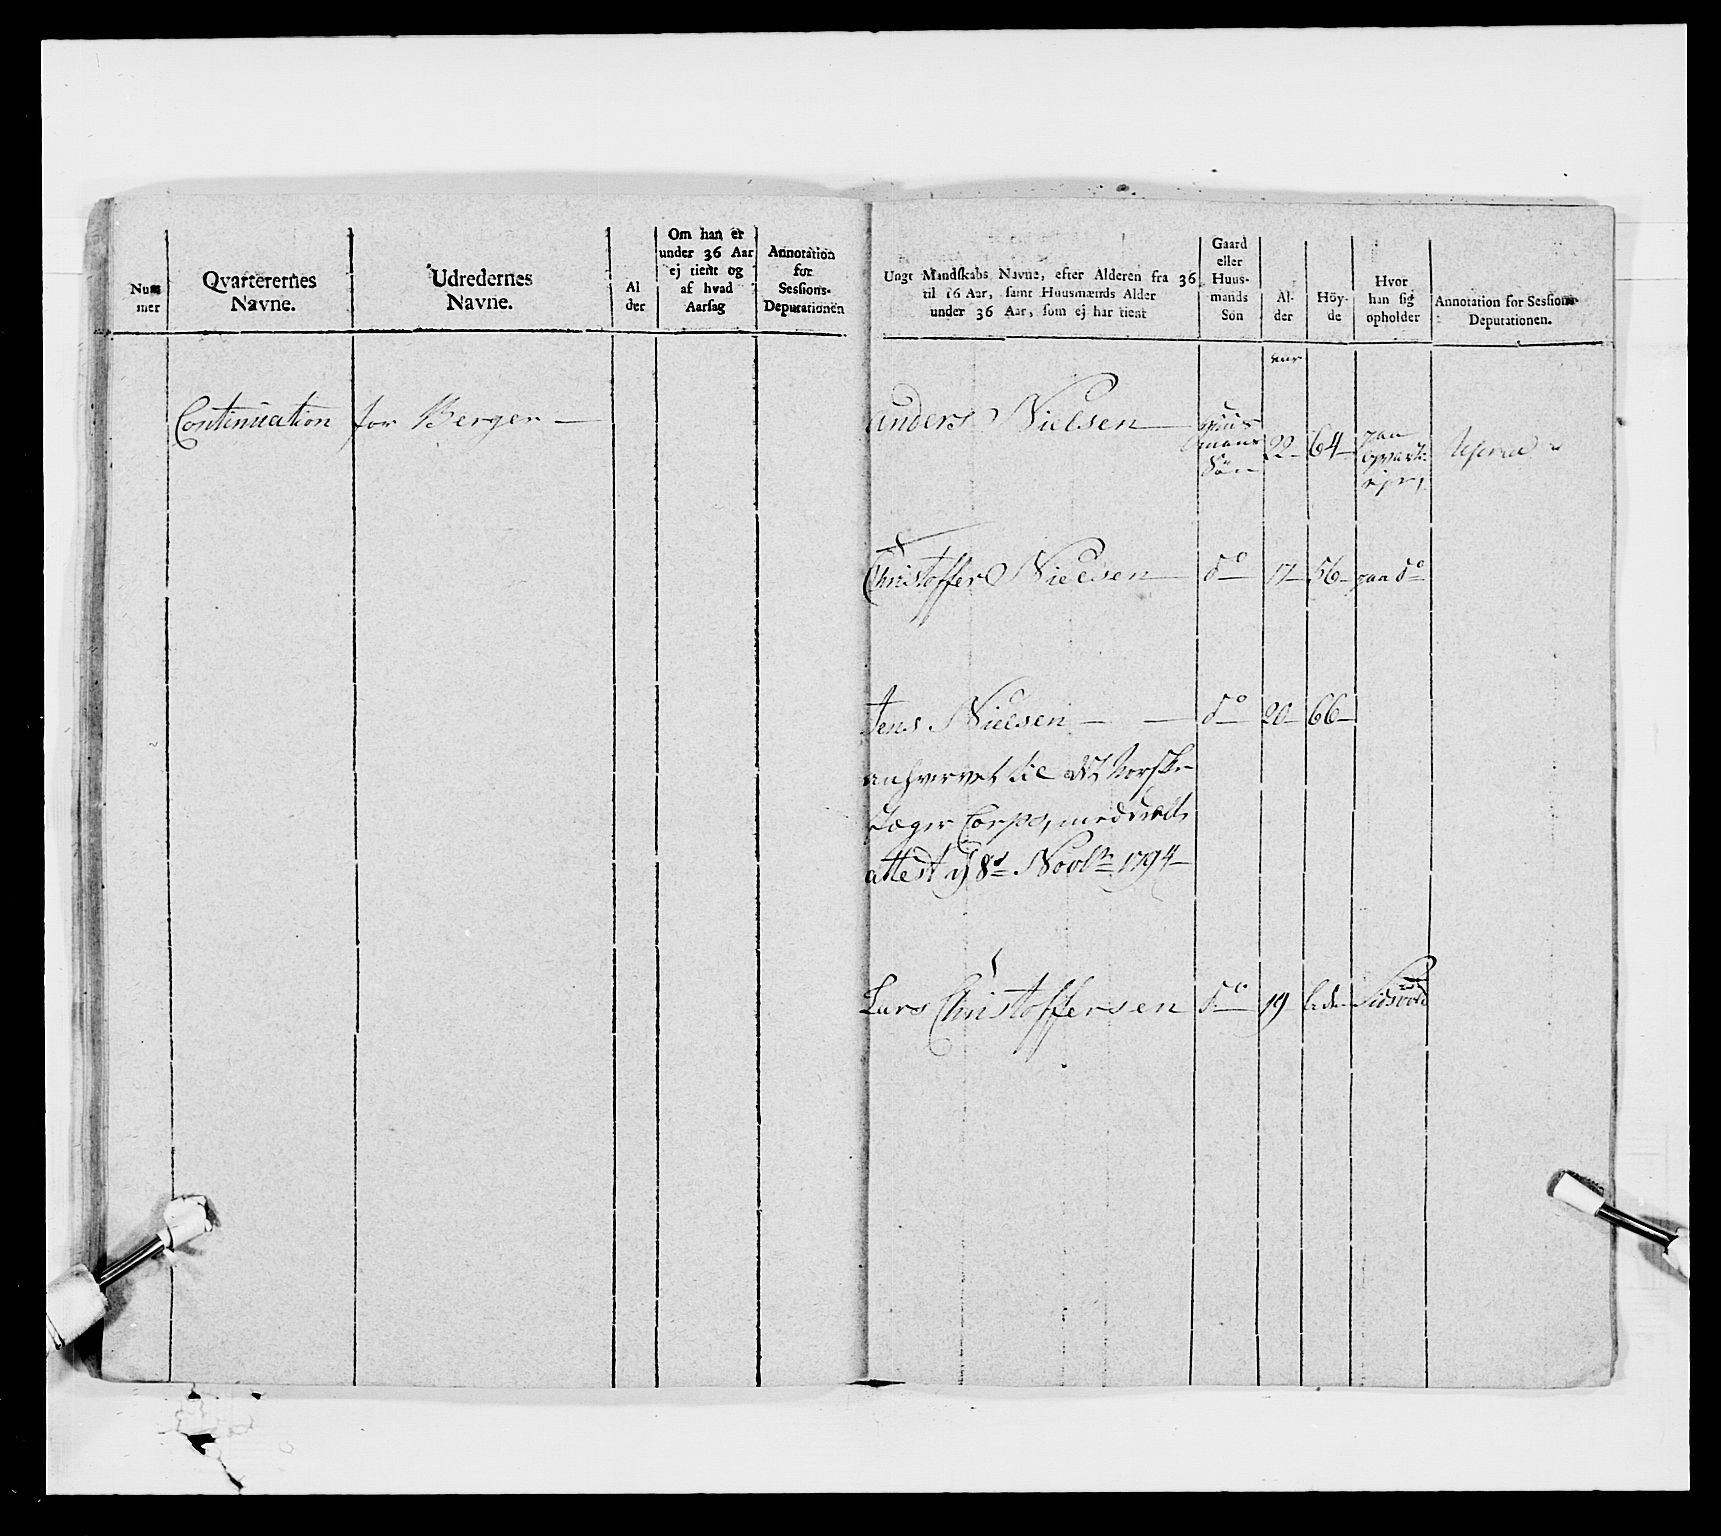 Num
mer
Qvarterernes
Navne.
Udredernes
Navne.
Al
der
Om han er
under 36 Aar
ej tient og
af hvad
Aarsag
Annotation
for
Sessions-
Deputationen
Continuation for Berger —
Ungt Mandskabs Navne, efter Alderen fra 36
til 16 Aar, samt Huusmænds Alder
under 36 Aar, som ej har tient
Gaard
eller
Huus-
mands
Søn
Al-
der
Höy-
de
Hvor
han sig
opholder
Annotation for Sessions-
Deputationen.
aar
Anders Nielsen — Huus
mans
Søn — 22 — 64 — paa
Christoffer Nielsen — do 17 — 56 — paa do
Jens Nielsen — — do 20 — 66 —
anhvervet til det Norske
Jæger Corps, meddeelt
attest 8de Novbr 1794 —
Lars Christoffersen do 19